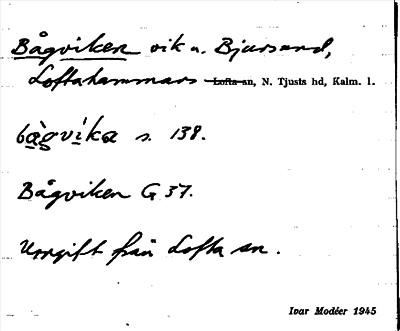 Bågviken vik v. Bjursund,
Loftahammars Lofta sn, N. Tjusts hd, Kalm. l.
bàgvìka s. 138.
Bågviken G 37.
Uppgift från Lofta sn.
Ivar Modéer 1945